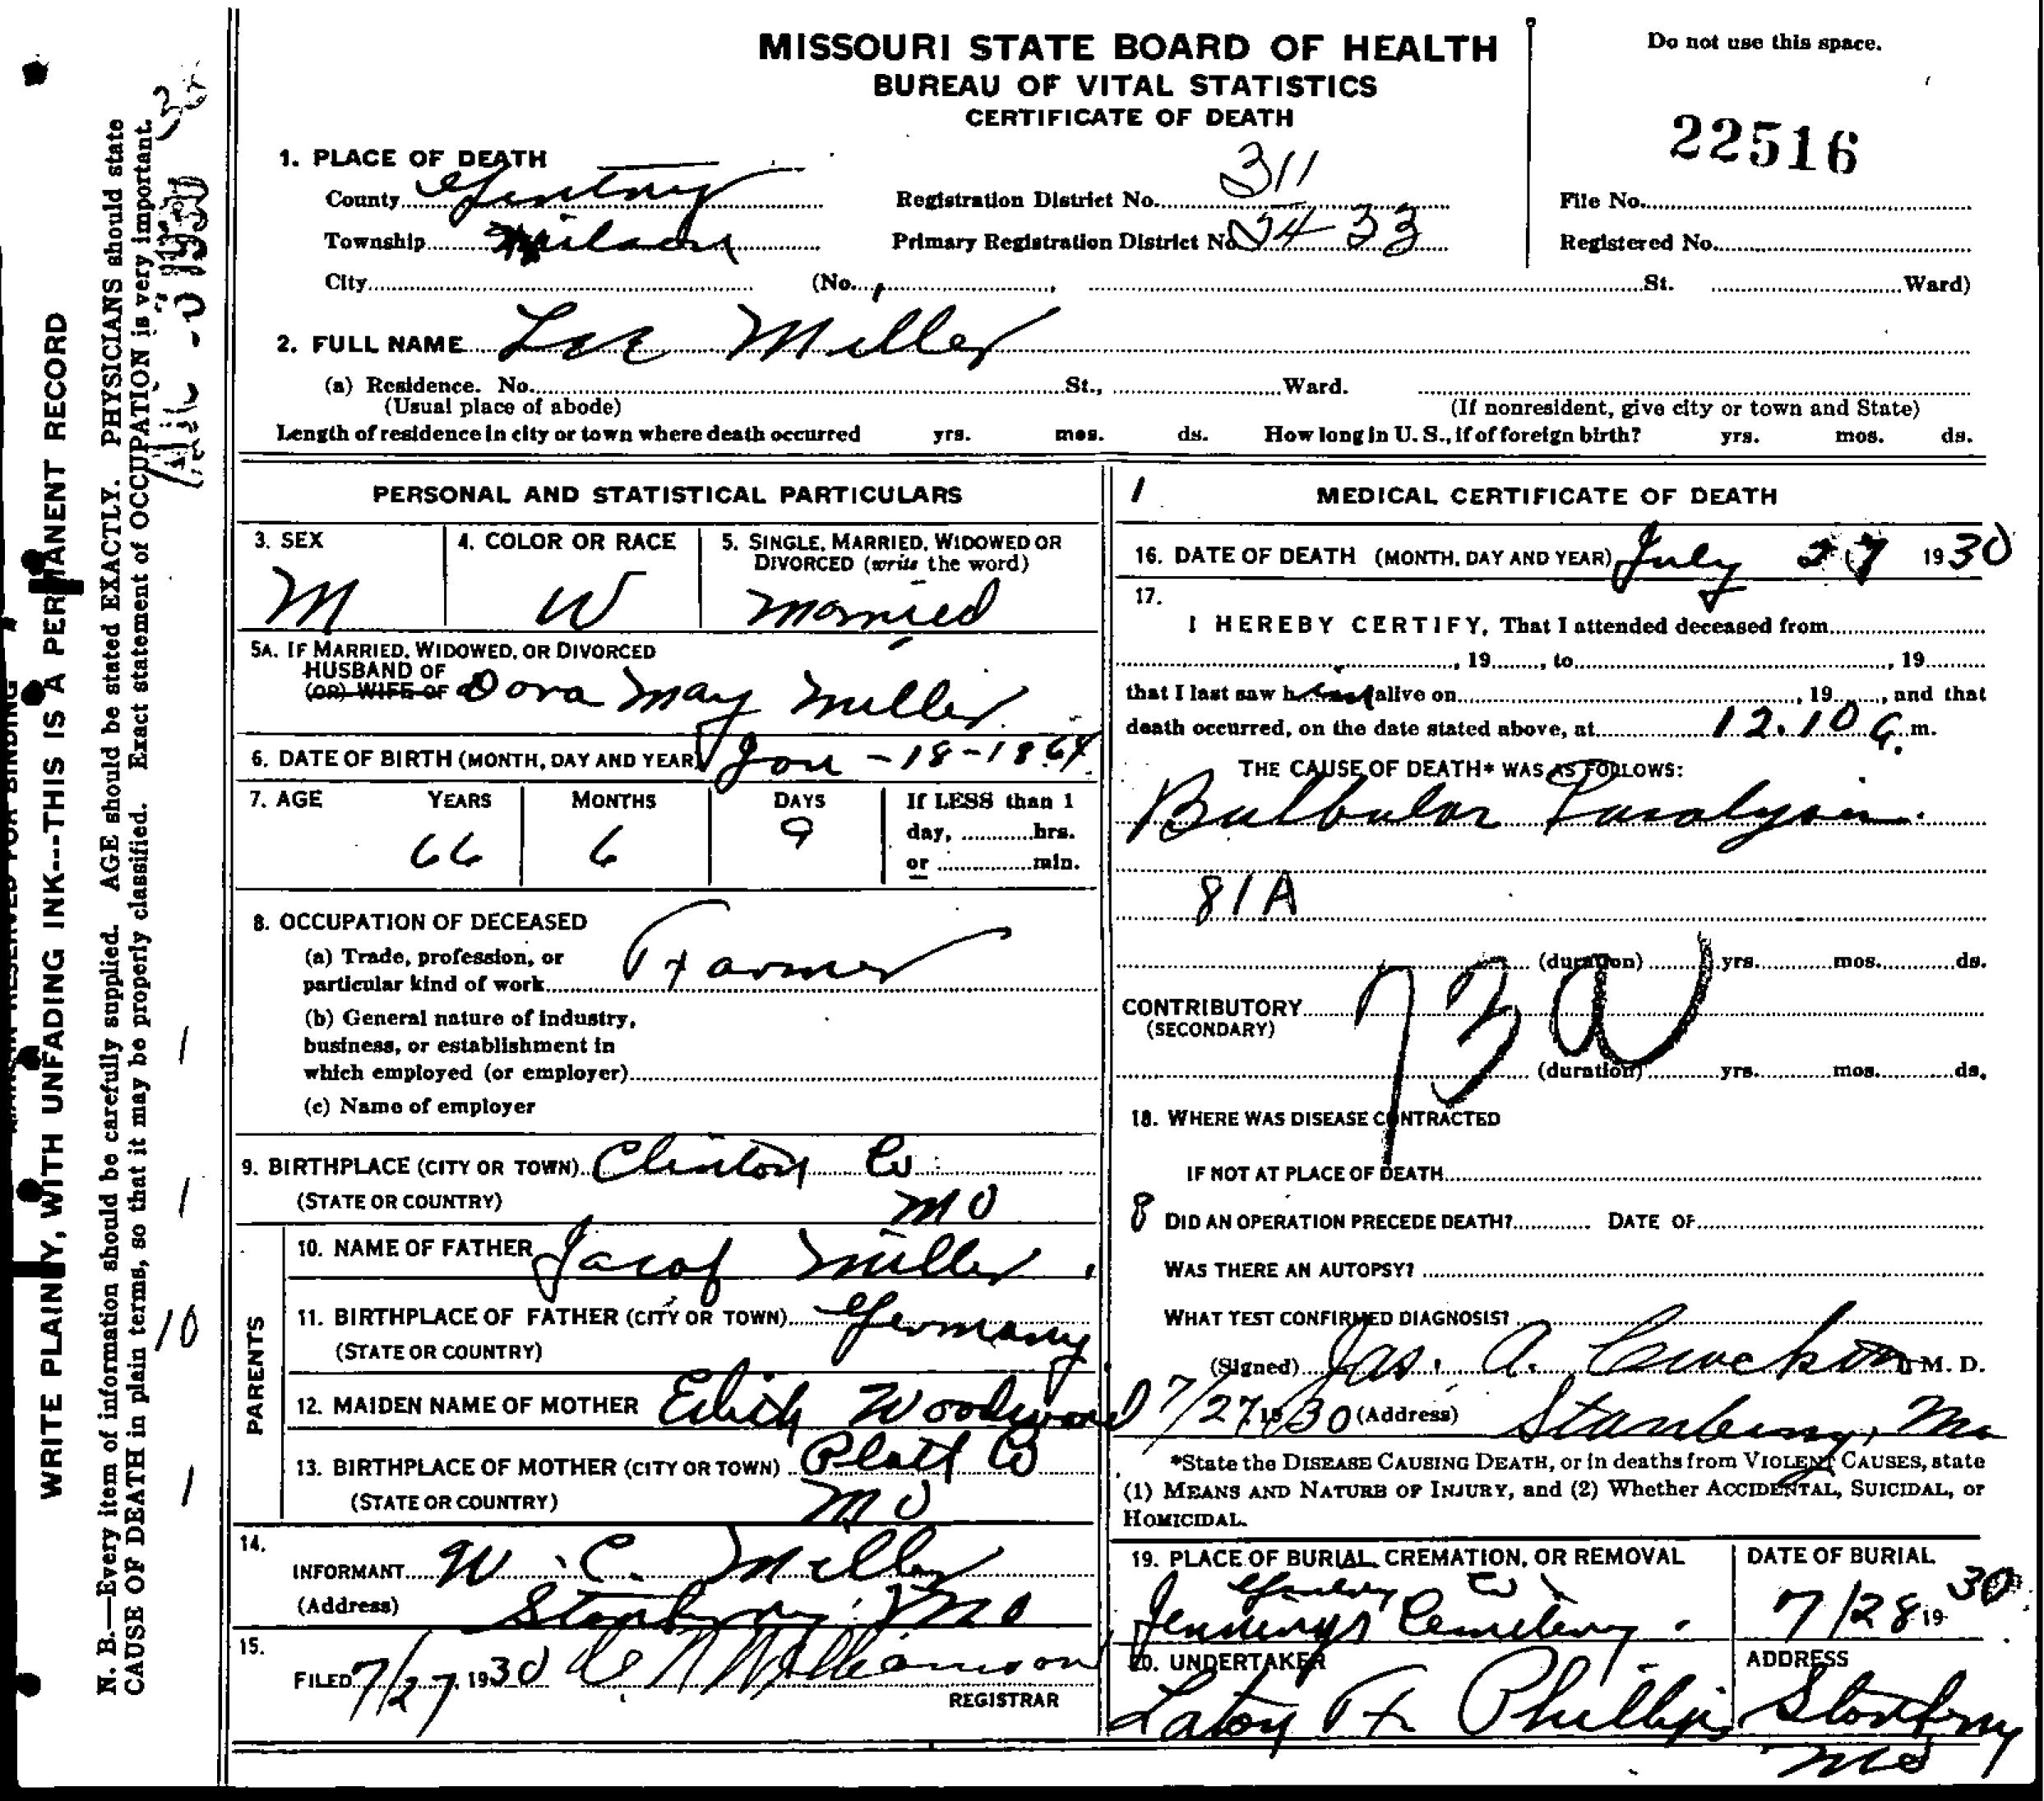 MISSOURI STATE BOARD OF HEALTH
BUREAU OF VITAL STATISTICS
CERTIFICATE OF DEATH
Do not use this space.
22516
1. PLACE OF DEATH
County Gentry Registration District No. 311 File No.
Township Wilson Primary Registration District No. 5433 Registered No.
City (No. St. Ward)
2. FULL NAME Lee Miller
(a) Residence. No. St., Ward.
(Usual place of abode) (If nonresident, give city or town and State)
Length of residence in city or town where death occurred yrs. mos. ds. How long in U. S., if of foreign birth? yrs. mos. ds.
PERSONAL AND STATISTICAL PARTICULARS
3. SEX 4. COLOR OR RACE 5. SINGLE, MARRIED, WIDOWED OR
DIVORCED (write the word)
M W Married
5A. IF MARRIED, WIDOWED, OR DIVORCED
HUSBAND OF
(OR) WIFE OF Dora May Miller
6. DATE OF BIRTH (MONTH, DAY AND YEAR) Jan - 18 - 1864
7. AGE YEARS MONTHS DAYS If LESS than 1
day, hrs.
or min.
66 6 9
8. OCCUPATION OF DECEASED
(a) Trade, profession, or
particular kind of work Farmer
(b) General nature of industry,
business, or establishment in
which employed (or employer)
(c) Name of employer
9. BIRTHPLACE (CITY OR TOWN) Clinton Co
(STATE OR COUNTRY) MO
PARENTS
10. NAME OF FATHER Jacob Miller
11. BIRTHPLACE OF FATHER (CITY OR TOWN) Germany
(STATE OR COUNTRY)
12. MAIDEN NAME OF MOTHER Edith Woodward
13. BIRTHPLACE OF MOTHER (CITY OR TOWN) Platt Co
(STATE OR COUNTRY) MO
14.
INFORMANT W. C. Miller
(Address) Stanberry Mo
15.
FILED 7/27, 1930 Williamson
REGISTRAR
1 MEDICAL CERTIFICATE OF DEATH
16. DATE OF DEATH (MONTH, DAY AND YEAR) July 27 1930
17.
I HEREBY CERTIFY, That I attended deceased from
, 19 , to , 19
that I last saw him alive on , 19 , and that
death occurred, on the date stated above, at 12.10 a. m.
THE CAUSE OF DEATH* WAS AS FOLLOWS:
Bulbular Paralysis
81A
(duration) yrs. mos. ds.
CONTRIBUTORY 73a
(SECONDARY)
(duration) yrs. mos. ds.
18. WHERE WAS DISEASE CONTRACTED
IF NOT AT PLACE OF DEATH
8 DID AN OPERATION PRECEDE DEATH? DATE OF
WAS THERE AN AUTOPSY?
WHAT TEST CONFIRMED DIAGNOSIS?
(Signed) Jas. A. M. D.
7/27, 1930 (Address) Stanberry, Mo
*State the DISEASE CAUSING DEATH, or in deaths from VIOLENT CAUSES, state
(1) MEANS AND NATURE OF INJURY, and (2) Whether ACCIDENTAL, SUICIDAL, or
HOMICIDAL.
19. PLACE OF BURIAL, CREMATION, OR REMOVAL DATE OF BURIAL
Gentry Co
Jennings Cemetery 7/28 1930
20. UNDERTAKER ADDRESS
Phillips Stanberry
Mo
WRITE PLAINLY, WITH UNFADING INK---THIS IS A PERMANENT RECORD
N. B.—Every item of information should be carefully supplied. AGE should be stated EXACTLY. PHYSICIANS should state
CAUSE OF DEATH in plain terms, so that it may be properly classified. Exact statement of OCCUPATION is very important.
1
1
10
1